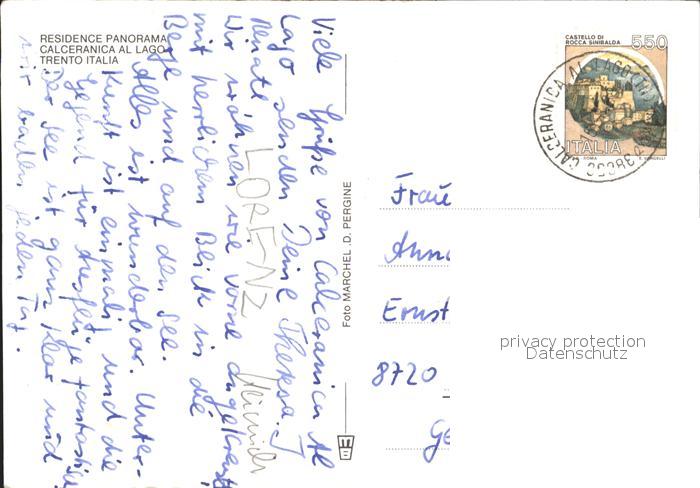 RESIDENCE PANORAMA
CALCERANICA AL LAGO
TRENTO ITALIA
Viele Grüße von Calceranica Al
Lago senden Deine Theresa
Renate LORENZ Heinrich
Wir wohnen wie vorne angekreuzt
mit herrlichem Blick in die
Berge und auf den See.
Alles ist wunderbar. Unter-
kunft ist einmalig und die
Gegend für Ausflüge fantastisch
Der See ist ganz klar und
wir baden jeden Tag.
Foto MARCHEL .D. PERGINE
CASTELLO DI
ROCCA SINIBALDA
550
ITALIA
ROMA
CALCERANICA AL LAGO (TN)
38050
Frau
Anna
Ernst
8720
privacy protection
Datenschutz